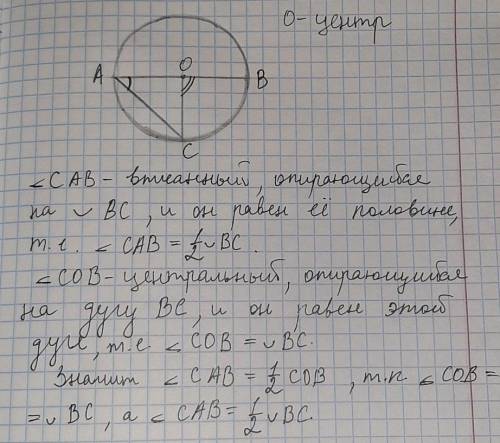 O - центр
O
A
B
C
∠CAB - вписанный, опирающийся
на ◡ BC, и он равен её половине,
т.е. ∠ CAB = 1/2 ◡ BC.
∠COB - центральный, опирающийся
на дугу BC, и он равен этой
дуге, т.е ∠ COB = ◡ BC.
Значит ∠ CAB = 1/2 COB, т.к ∠ COB =
= ◡ BC, а ∠ CAB = 1/2 ◡ BC.